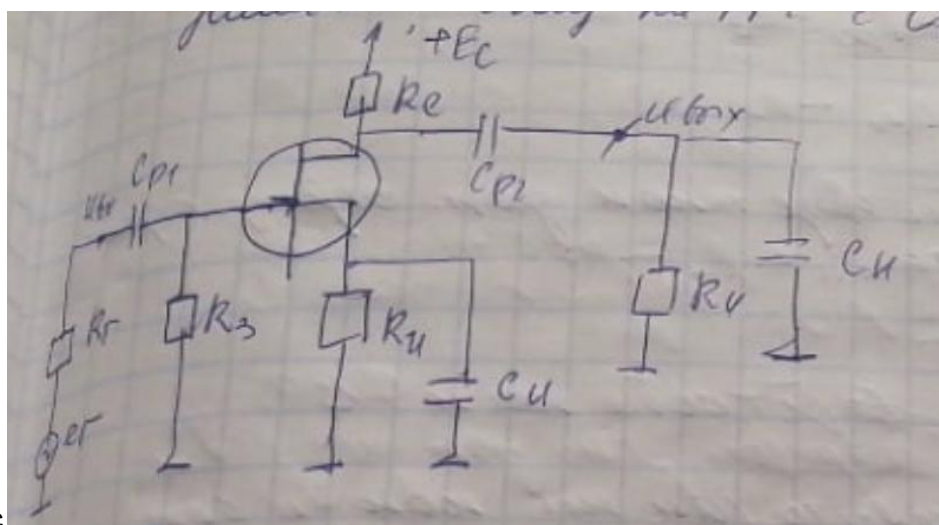 +Ec
Rc
Uвых
Cp1
Cp2
Uвх
Rг
Rз
Rи
Cи
Rн
Cн
eг